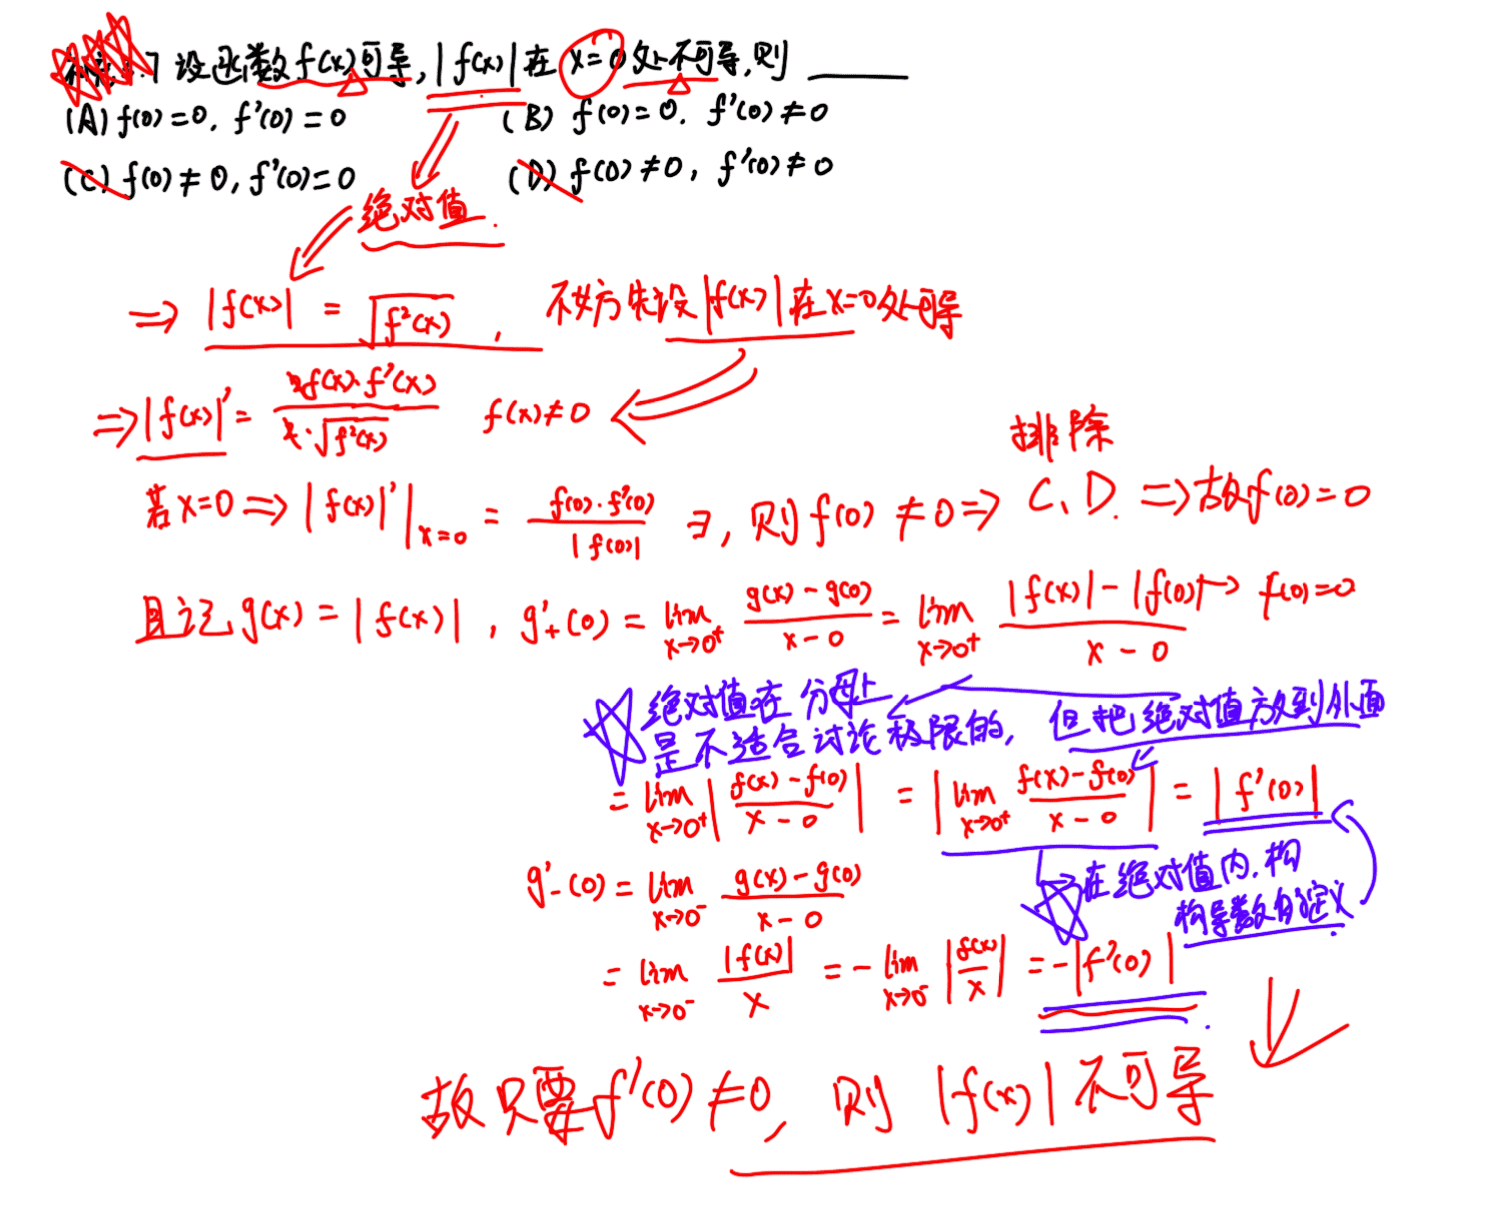 7 设函数f(x)可导, |f(x)|在x=0处不可导,则 ______
(A) f(0)=0, f'(0)=0 (B) f(0)=0, f'(0)≠0
(C) f(0)≠0, f'(0)=0 (D) f(0)≠0, f'(0)≠0
绝对值.
⇒ |f(x)| = √f²(x), 不妨先设|f(x)|在x=0处可导
⇒ |f(x)|' = 2f(x)·f'(x) / 2·√f²(x) f(x)≠0
排除
若x=0 ⇒ |f(x)|'|x=0 = f(0)·f'(0) / |f(0)| ∃, 则f(0)≠0 ⇒ C、D. ⇒ 故f(0)=0
且记g(x)=|f(x)|, g'₊(0) = lim x→0⁺ g(x)-g(0) / x-0 = lim x→0⁺ |f(x)|-|f(0)| / x-0 → f(0)=0
绝对值在分母上
是不适合讨论极限的, 但把绝对值放到外面
= lim x→0⁺ |f(x)-f(0) / x-0| = |lim x→0⁺ f(x)-f(0) / x-0| = |f'(0)|
→在绝对值内,构
构导数的定义.
g'₋(0) = lim x→0⁻ g(x)-g(0) / x-0
= lim x→0⁻ |f(x)| / x = - lim x→0⁻ |f(x) / x| = -|f'(0)|
故只要f'(0)≠0, 则 |f(x)|不可导